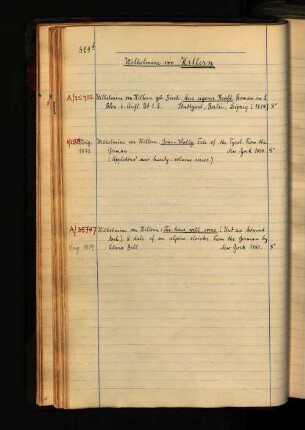 Wilhelmine von Hillern
A/25722 Wilhelmine von Hillern geb. Birch. Aus eigener Kraft. Roman in 3
Stuttgart, Berlin, Leipzig 8°
1892 Wilhelmine von Hillern. Geier-Wally. Tale of the Tyrol. From the
German. New York 8°
(Appletons' new handy-volume series.)
A/25747 Wilhelmine von Hillern. The hour will come. (Und sie kommt
doch). A tale of an alpine cloister. From the German by
Clara Bell. New York 8°